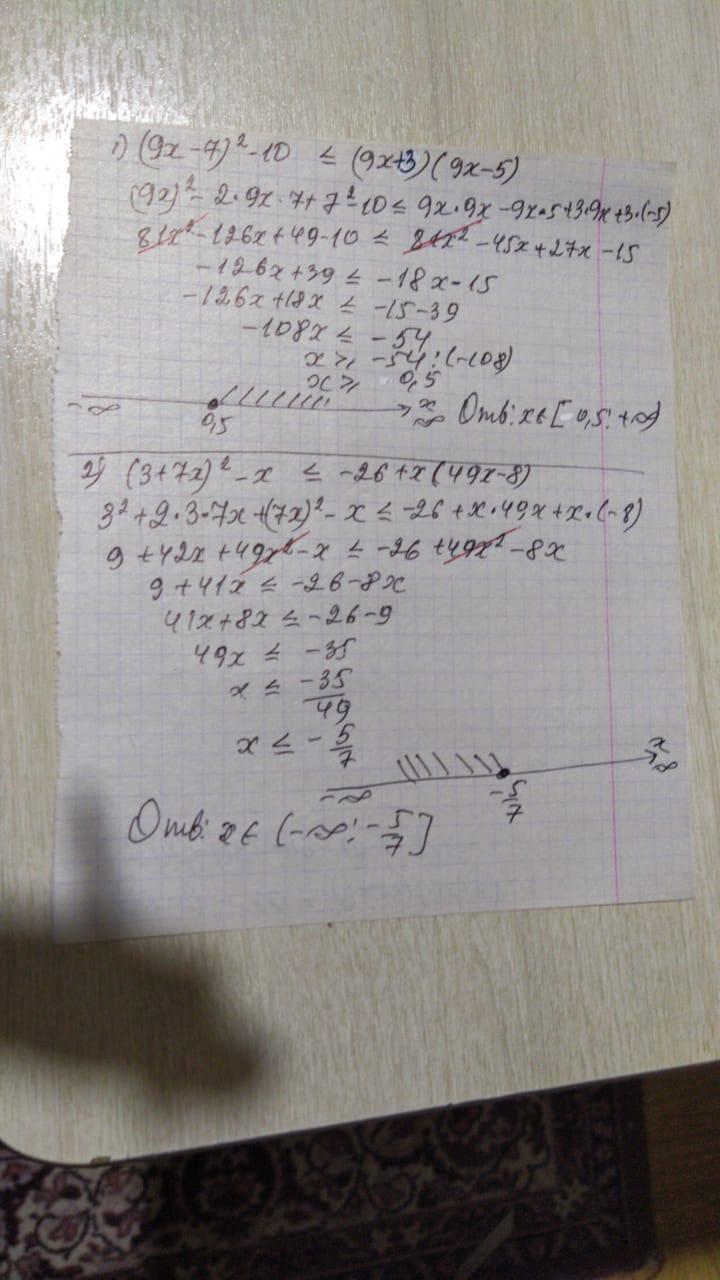 1) (9x-7)²-10 ≤ (9x+3)(9x-5)
(9x)²-2·9x·7+7²-10 ≤ 9x·9x-9x·5+3·9x+3·(-5)
81x²-126x+49-10 ≤ 81x²-45x+27x-15
-126x+39 ≤ -18x-15
-126x+18x ≤ -15-39
-108x ≤ -54
x ⩾ -54:(-108)
x ⩾ 0,5
-∞ 0,5 x ∞ Отв: x∈[0,5; +∞)
2) (3+7x)²-x ≤ -26+x(49x-8)
3²+2·3·7x+(7x)²-x ≤ -26+x·49x+x·(-8)
9+42x+49x²-x ≤ -26+49x²-8x
9+41x ≤ -26-8x
41x+8x ≤ -26-9
49x ≤ -35
x ≤ -35/49
x ≤ -5/7
-∞ -5/7 x ∞
Отв: x∈(-∞; -5/7]